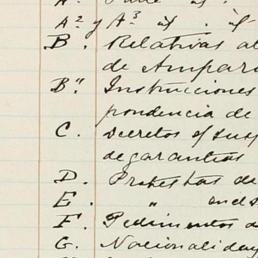 A² y A³ id . id
B. Relativas al
de Ampar
B" Instrucciones
pondencia de
C. Decretos s/ susp
de garantías
D. Protestas de
E. " en el
F. Pedimentos d
G. Nacionalidad y